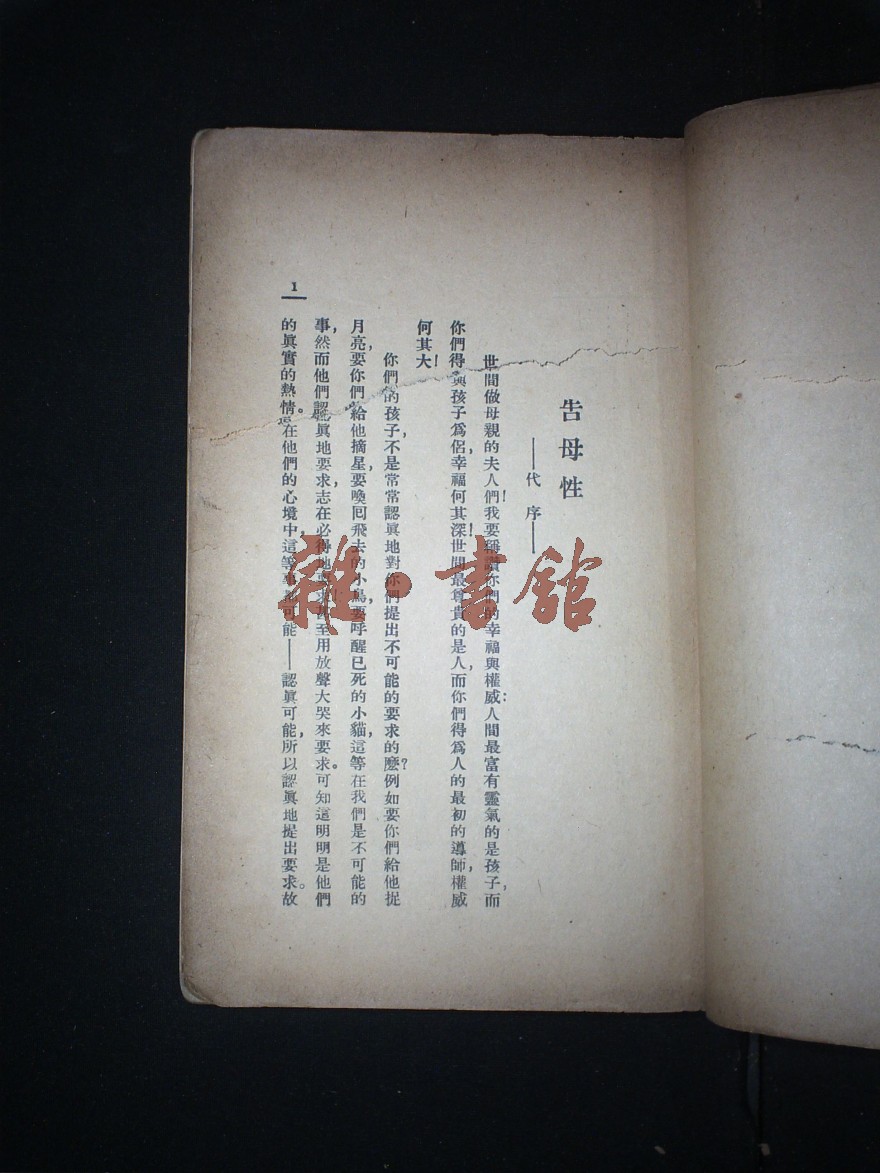 告母性
——代序——
世間做母親的夫人們!我要稱讚你們的幸福與權威:人間最富有靈氣的是孩子,而
你們得與孩子爲侶,幸福何其深!世間最尊貴的是人,而你們得爲人的最初的導師,權威
何其大!
你們的孩子,不是常常認眞地對你們提出不可能的要求的麼?例如要你們給他捉
月亮,要你們給他摘星,要喚囘飛去的小鳥,要呼醒已死的小貓,這等在我們是不可能的
事,然而他們認眞地要求,志在必得地要求,甚至用放聲大哭來要求。可知這明明是他們
的眞實的熱情。在他們的心境中,這等事都可能——認眞可能,所以認眞地提出要求。故
1
雜·書館